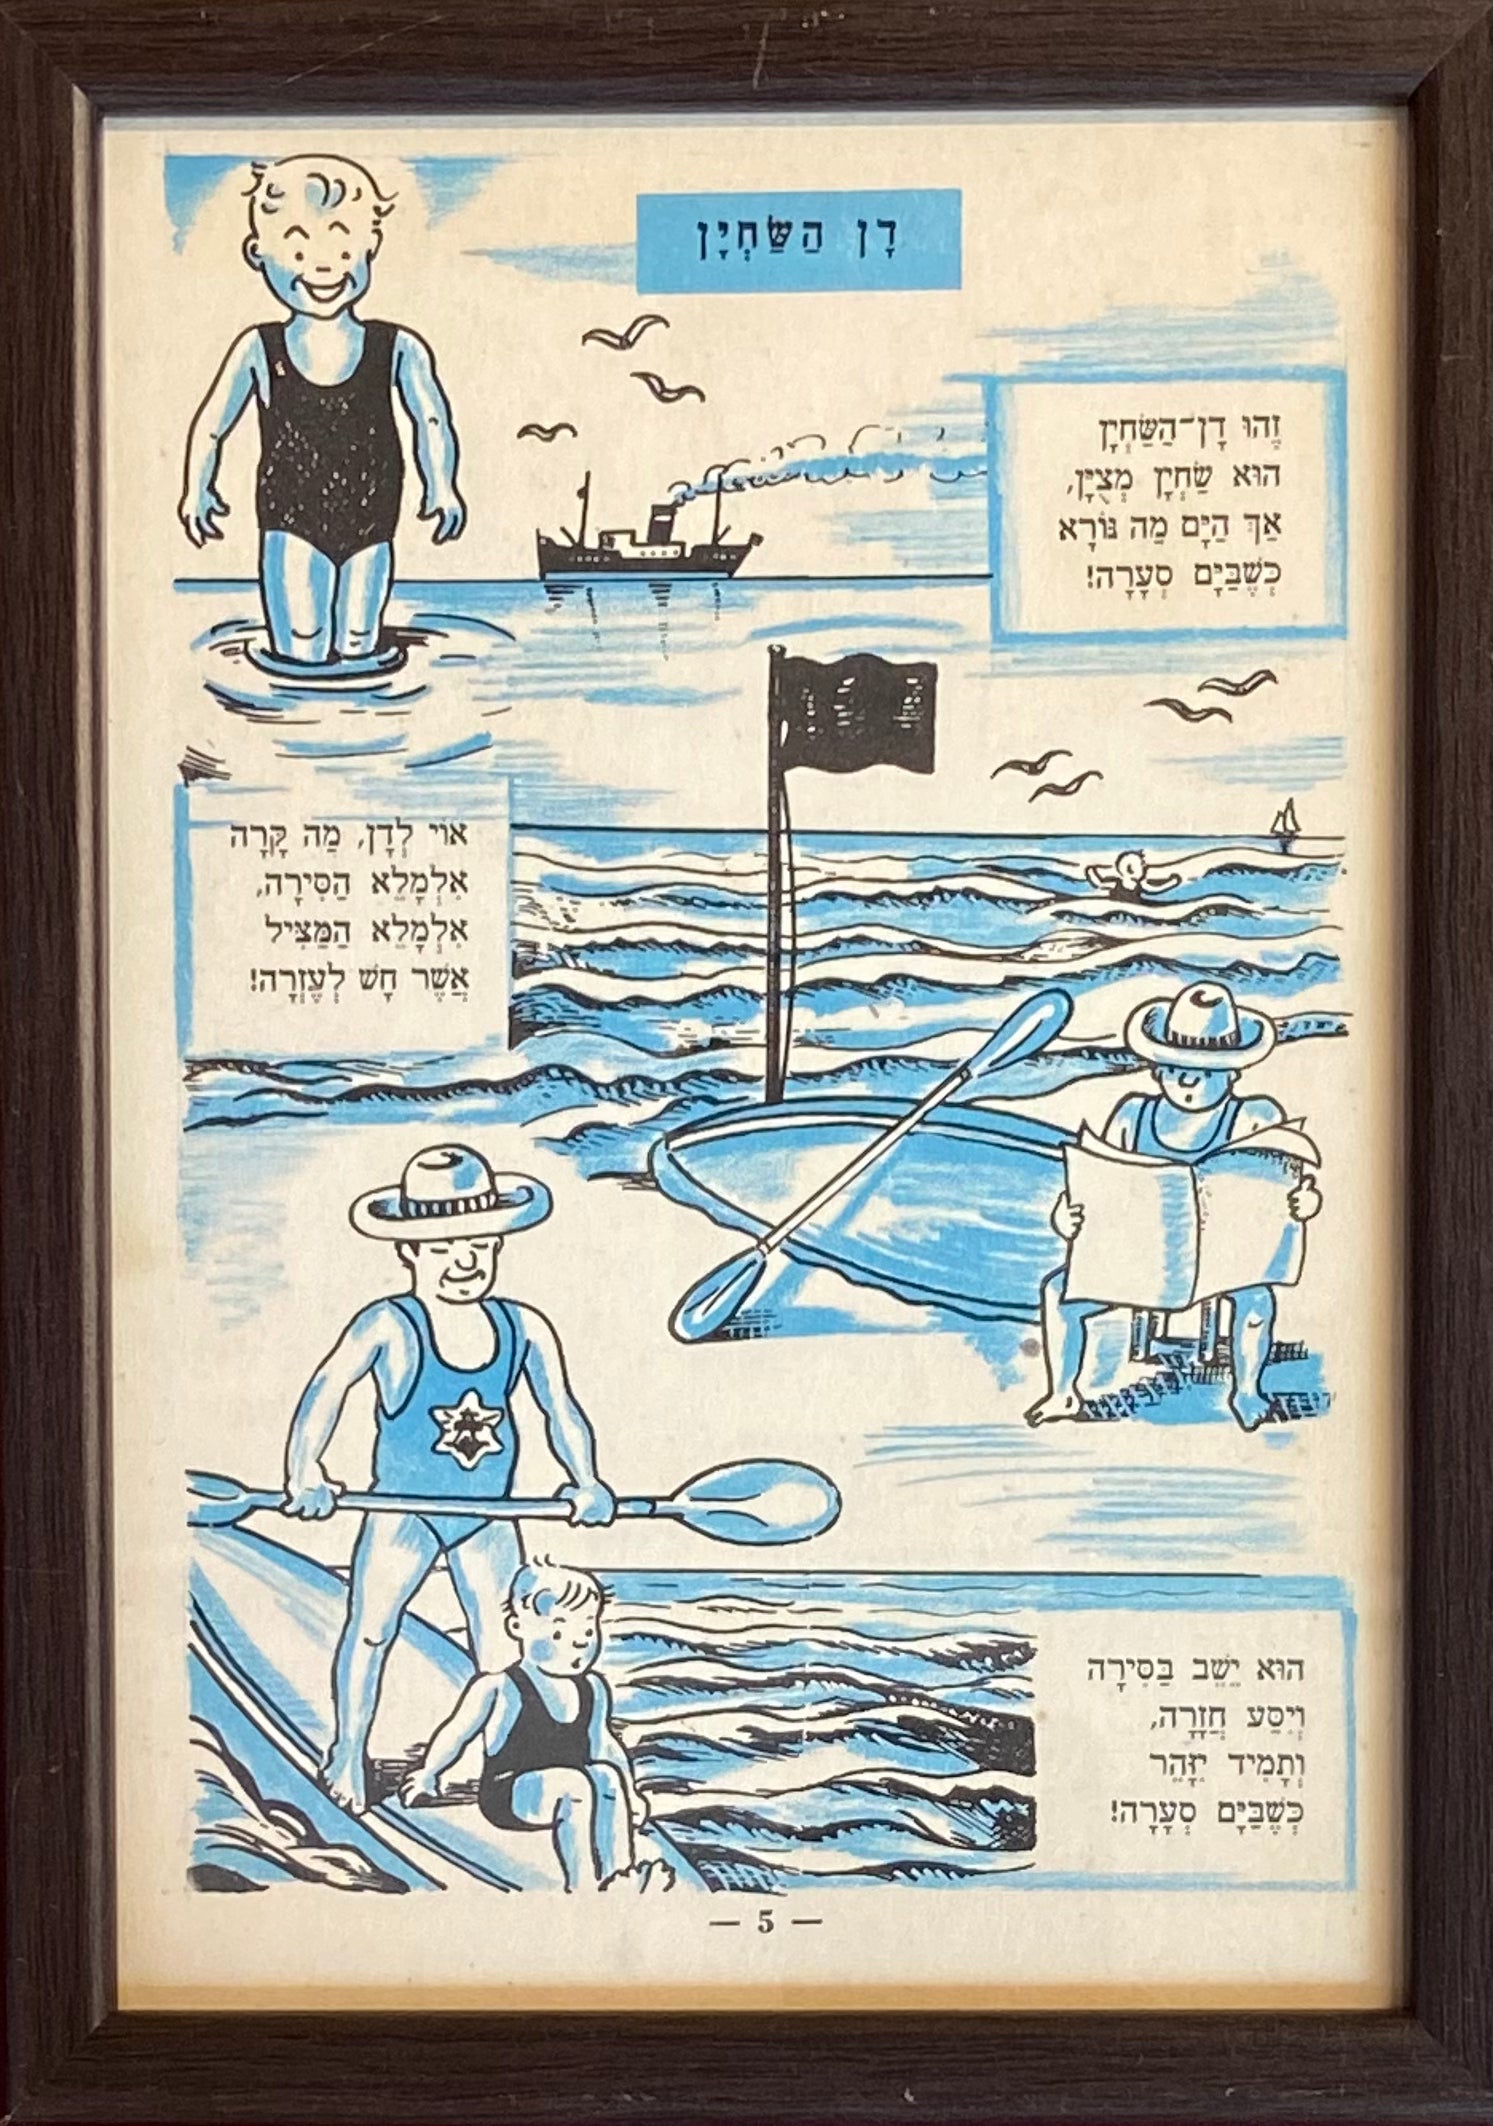 דָן הַשַּׂחְיָן
זֶהוּ דָן־הַשַּׂחְיָן
הוּא שַׂחְיָן מְצֻיָּן,
אַךְ הַיָּם מַה נּוֹרָא
כְּשֶׁבַּיָּם סְעָרָה!
אוֹי לְדָן, מַה קָּרָה
אִלְמָלֵא הַסִּירָה,
אִלְמָלֵא הַמַּצִּיל
אֲשֶׁר חָשׁ לְעֶזְרָה!
הוּא יֵשֵׁב בַּסִּירָה
וְיִסַּע חֲזָרָה,
וְתָמִיד יִזָּהֵר
כְּשֶׁבַּיָּם סְעָרָה!
— 5 —